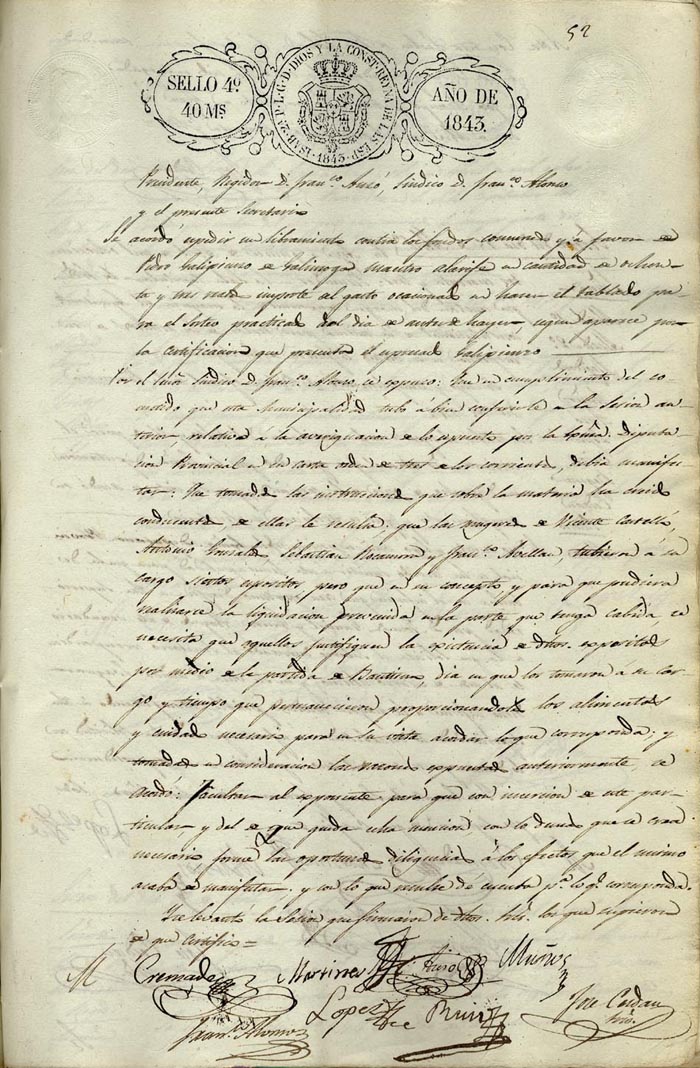 52
SELLO 4º
40 Ms
ISAB. 2ª P. L. G. D. DIOS Y LA CONST. REYNA DE LAS ESP. 1843
AÑO DE
1843.
Presidente, Regidor D. Franco. Auzó, Sindico D. Franco. Alonso
y el presente Secretario
Se acordó espedir un libramiento contra los fondos comunes y á favor de
Pedro Galipienzo de maestro Alarife en cantidad de ochen-
ta y tres reales importe del gasto ocasionado en hacer el tablado pa-
ra el Sorteo practicado del dia de antes de hayer, segun aparece por
la certificacion que presenta el espresado Galipienzo
Por el Señor Sindico D. Franco. Alonso se espuso: Que en cumplimiento del co-
metido que esta Municipalidad tubo á bien conferirle en la Sesion an-
terior, relativo á la averiguacion de lo espuesto por la Escma. Diputa-
cion Provincial en su carta orden de tres de los corrientes, debia manifes-
tar: Que tomadas las instrucciones que sobre la materia ha creido
conducentes, de ellas le resulta: que las mugeres de Vicente Castelló,
Antonio Gonzalez, Sebastian Rocamora y Franco. Avellan, tubieron á su
cargo siertos espositos, pero que en su concepto, y para que pudiera
realizarse la liquidacion prevenida en la parte que tenga cabida, se
necesita que aquellos justifiquen la existencia de dhos. espositos
por medio de la partida de Bautismo, dia en que los tomaron á su car-
go y tiempo que permanecieron proporcionandoles los alimentos
y cuidado necesario para en su vista acordar lo que corresponda; y
tomadas en consideracion las razones espuestas anteriormente, se
acordó: Facultar al esponente para que con insercion de este par-
ticular y del de que queda echa mencion con lo demas que se crea
necesario forme las oportunas diligencias á los efectos que el mismo
acaba de manifestar, y con lo que resulte dé cuenta pa. lo qe. corresponda.
Y se levantó la Sesion que firmaron de dhos. Sres. los que supieron
de que certifico =
Cremades Martinez Auzó Muñoz
Lopez Bru Jose Cerdan
Franco. Alonso Srio.